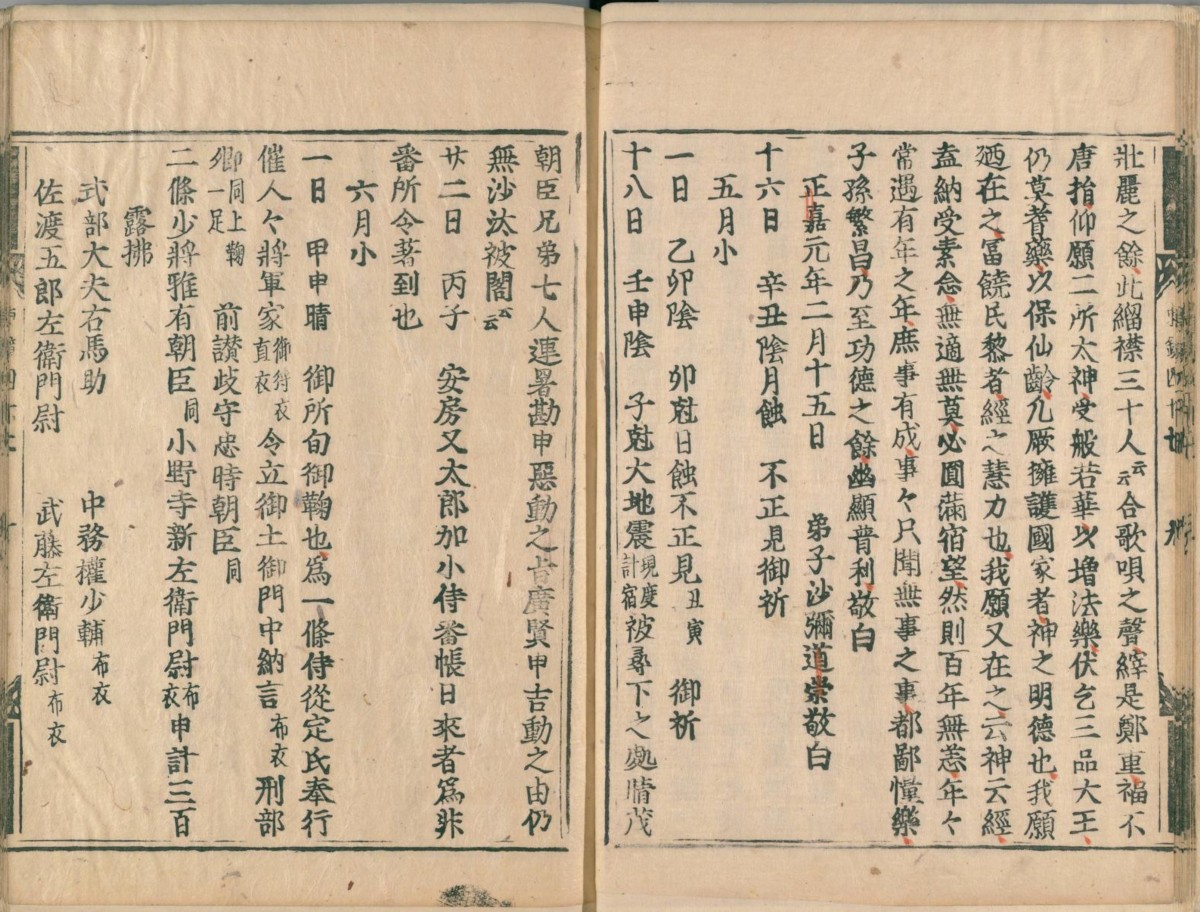 壯麗之餘此緇襟三十人云云合歌唄之聲繹是鄭重福不
唐捐仰願二所太神受般若華以増法樂伏乞三品大王
仍莫耆藥以保仙齡凡厥擁護國家者神之明德也我願
廼在之冨饒民黎者經之慧力也我願又在之云神云經
盍納受素念無適無莫必圓滿宿望然則百年無恙年々
常遇有年之年庶事有成事々只聞無事之事都鄙懽樂
子孫繁昌乃至功德之餘幽顯普利敬白
正嘉元年二月十五日　弟子沙彌道崇敬白
十六日　辛丑陰月蝕　不正見御祈
五月小
一日　乙卯陰　卯尅日蝕不正見丑寅　御祈
十八日　壬申陰　子尅大地震現度計宿被尋下之處晴茂
朝臣兄弟七人連署勘申惡動之旨廣賢申吉動之由仍
無沙汰被閣云云
廿二日　丙子　安房又太郎加小侍番帳日來者爲非
番所令著到也
六月小
一日　甲申晴　御所旬御鞠也爲一條侍從定氏奉行
催人々將軍家御狩衣直衣令立御土御門中納言布衣刑部
卿同上鞠一足　前讃岐守忠時朝臣同
二條少將雅有朝臣同小野寺新左衛門尉布衣申計三百
露拂
式部大夫右馬助　中務權少輔布衣
佐渡五郎左衛門尉　武藤左衛門尉布衣